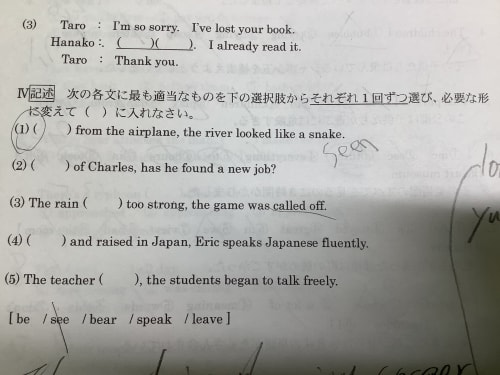 (3) Taro : I'm so sorry. I've lost your book.
Hanako : ( )( ). I already read it.
Taro : Thank you.
Ⅳ 記述 次の各文に最も適当なものを下の選択肢からそれぞれ1回ずつ選び、必要な形
に変えて ( ) に入れなさい。
(1) ( ) from the airplane, the river looked like a snake.
seen
(2) ( ) of Charles, has he found a new job?
(3) The rain ( ) too strong, the game was called off.
(4) ( ) and raised in Japan, Eric speaks Japanese fluently.
(5) The teacher ( ), the students began to talk freely.
[ be / see / bear / speak / leave ]